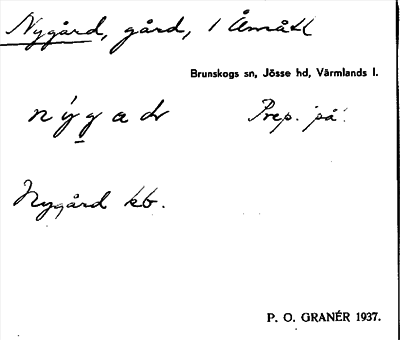 Nygård, gård, 1 Åmått
Brunskogs sn, Jösse hd, Värmlands l.
nýgaḍr Prep. på.
Nygård kb.
P. O. GRANÉR 1937.